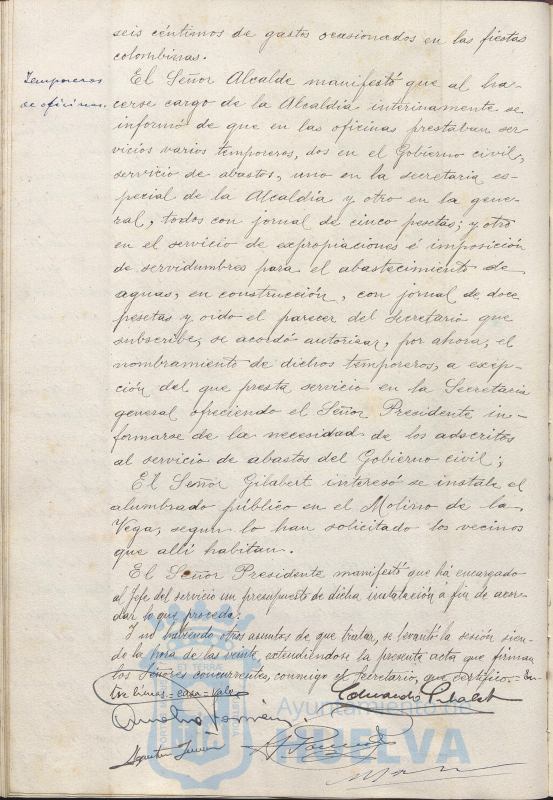 seis céntimos de gastos ocasionados en las fiestas
colombinas.
Temporeros
de oficinas.
El Señor Alcalde manifestó que al ha-
cerse cargo de la Alcaldía interinamente se
informó de que en las oficinas prestaban ser-
vicios varios temporeros, dos en el Gobierno civil,
servicio de abastos, uno en la secretaría es-
pecial de la Alcaldía y otro en la gene-
ral, todos con jornal de cinco pesetas; y otro
en el servicio de expropiaciones é imposición
de servidumbres para el abastecimiento de
aguas, en construcción, con jornal de doce
pesetas y oido el parecer del Secretario que
subscribe, se acordó autorizar, por ahora, el
nombramiento de dichos temporeros, a excep-
ción del que presta servicio en la Secretaría
general ofreciendo el Señor Presidente in-
formarse de la necesidad de los adscritos
al servicio de abastos del Gobierno civil;
El Señor Gilabert interesó se instale el
alumbrado público en el Molino de la
Vega, segun lo han solicitado los vecinos
que allí habitan.
El Señor Presidente manifestó que há encargado
al Jefe del servicio un presupuesto de dicha instalación a fin de acor-
dar lo que proceda.
Y no habiendo otros asuntos de que tratar, se levantó la sesión sien-
do la hora de las veinte, extendiéndose la presente acta que firman
los Señores concurrentes, conmigo el Secretario, que certifico.=En-
tre lineas=
=vale=
Eduardo Gilabert
Ayuntamiento de
HUELVA